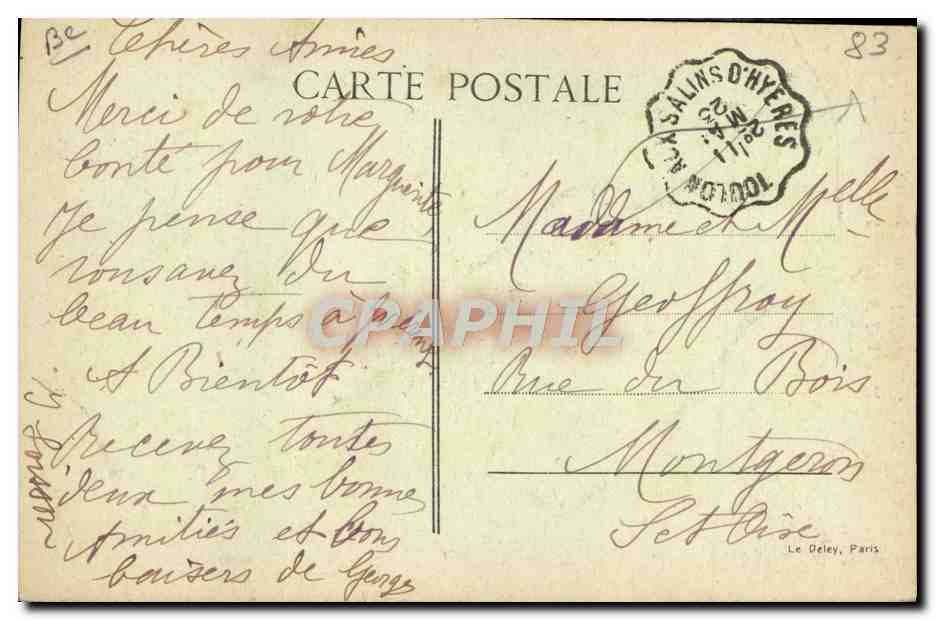 Be
83
Chères Amies
CARTE POSTALE
TOULON AUX SALINS D'HYERES
Merci de votre
bonté pour Marguerite
Je pense que
vous avez du
beau temps à la
A Bientôt
Recevez toutes
deux mes bonnes
Amitiés et bons
baisers de Georges
Madame et Melle
Geoffroy
Rue du Bois
Montgeron
S et Oise
Le Deley, Paris
CPAPHIL